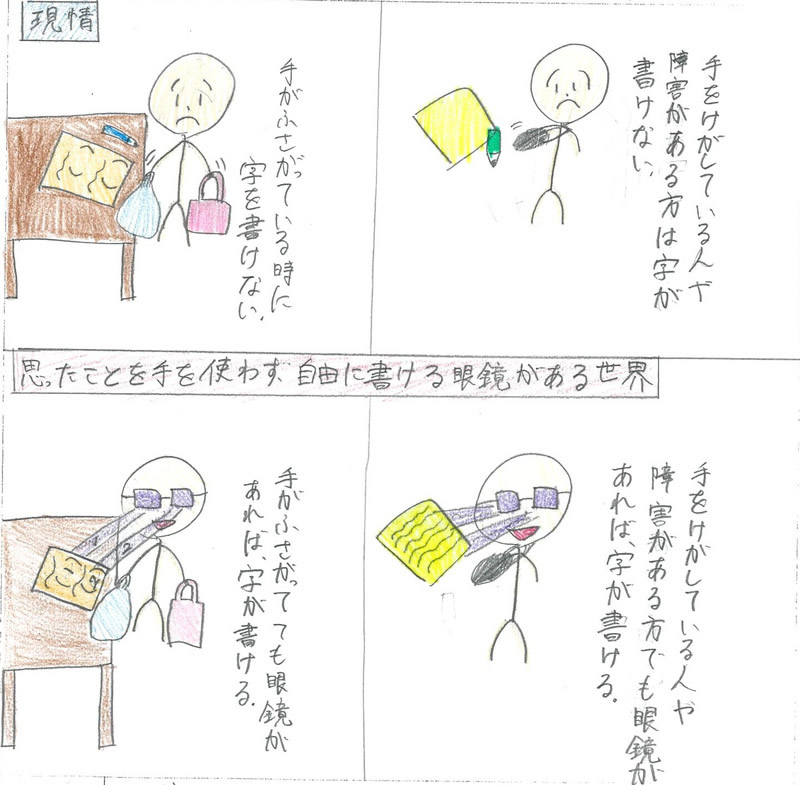 現情
手をけがしている人や
障害がある方は字が
書けない。
手がふさがっている時に
字を書けない。
思ったことを手を使わず、自由に書ける眼鏡がある世界
手をけがしている人や
障害がある方でも眼鏡が
あれば、字が書ける。
手がふさがってても眼鏡が
あれば、字が書ける。